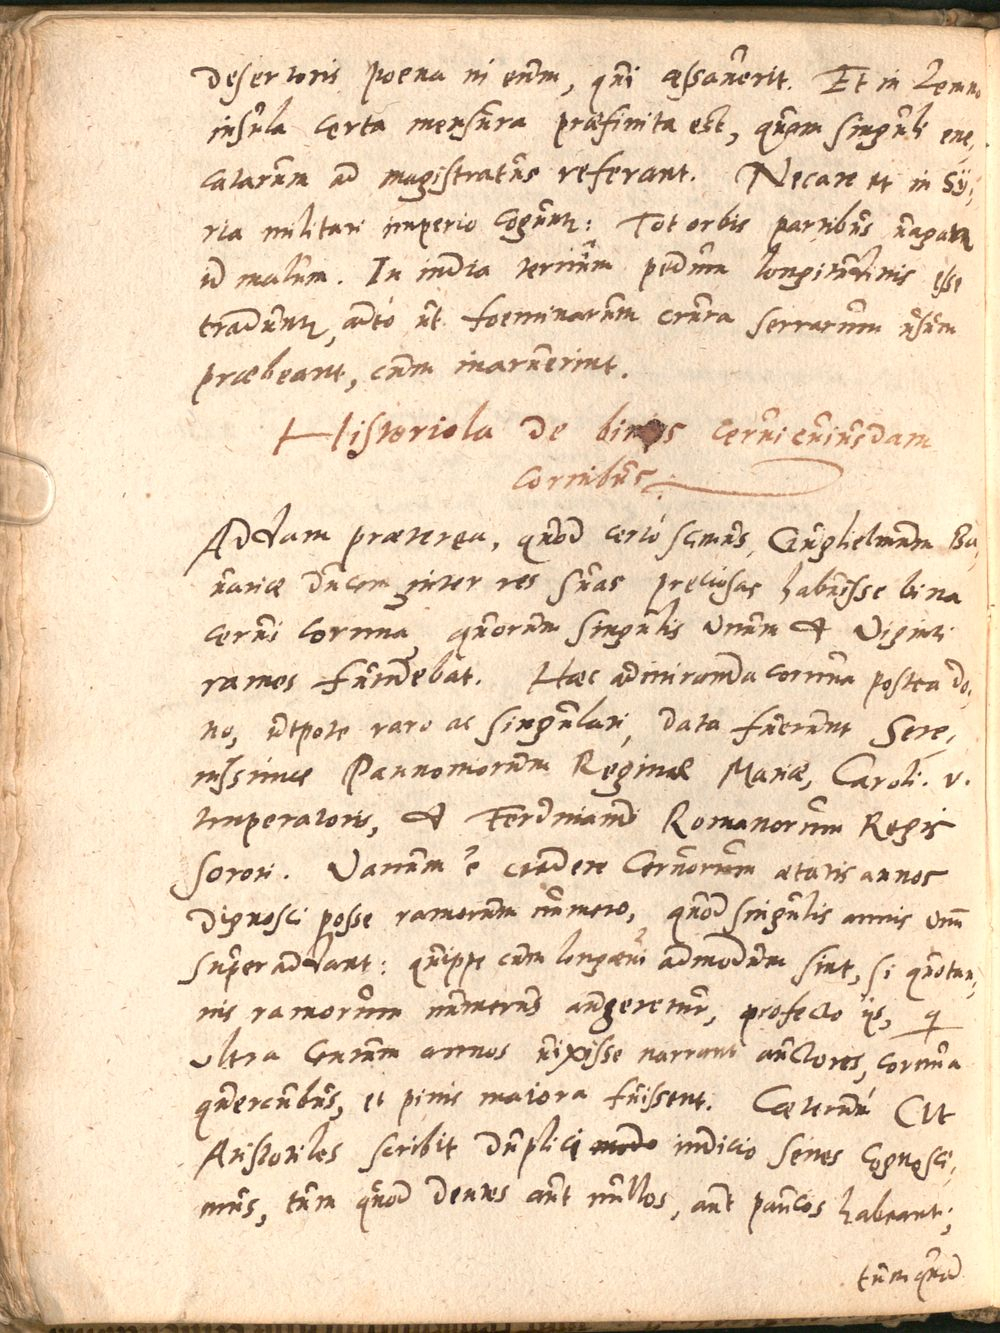 desertoris poena in eum, qui cessauerit. Et in Lemno
insula certa mensura præfinita est, quam singuli ene,
catarum ad magistratus referant. Necare et in Sÿ,
ria militari imperio cogunt̃: Tot orbis partibus uagat̃
id malum. In india ternûm pedum longitudinis esse
tradunt̃, adeò ut foeminarum crura serrarum usum
præbeant, cum inaruerint.
Historiola de binis cerui cuiusdam
cornibus.
Addam præterea, quod certò scimus, Guglielmum Ba,
uariæ Ducem inter res suas preciosas habuisse bina
cerui cornua, quorum singulis unum & viginti
ramos fundebat. Hæc admiranda cornua postea do,
no, utpote raro ac singulari, data fuerunt Sere,
nissimæ Pannoniorum Reginæ Mariæ, Caroli. v.
Imperatoris, & Ferdinandi Romanorum Regis
sorori. Vanum ẽ credere Ceruorum ætatis annos
dignosci posse ramorum numero, quod singulis annis unũ
superaddant: quippe cum longæui admodum sint, si quotan,
nis ramorum numerus augeretur, profecto ijs, q
ultra centum annos uixisse narrant auctores, cornua
quercubus, et pinis maiora fuissent. Cæterum Ut
Aristotiles scribit duplici indicio senes cognosci,
mus, tum quod dentes aut nullos, aut paucos habeant;
tum quod